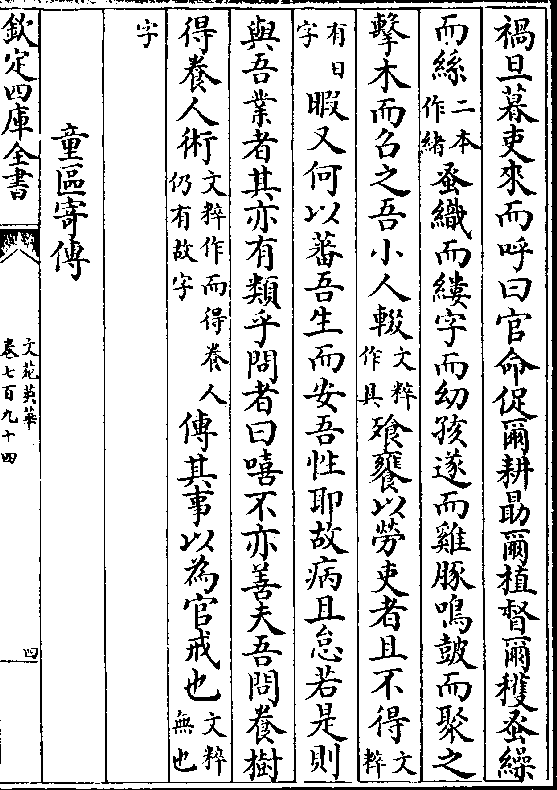 禍旦暮吏來而呼曰官命促爾耕勗爾植督爾穫蚤繰
而絲二本作緒蚤織而縷字而幼孩遂而雞豚鳴鼓而聚之
擊木而召之吾小人輟文粹作具飧饔以勞吏者且不得文粹
有日字暇又何以蕃吾生而安吾性耶故病且怠若是則
與吾業者其亦有類乎問者曰嘻不亦善夫吾問養樹
得養人術文粹作而得養人仍有故字傳其事以為官戒也文粹無也
字
童區寄傳
欽定四庫全書
文苑英華
卷七百九十四
四